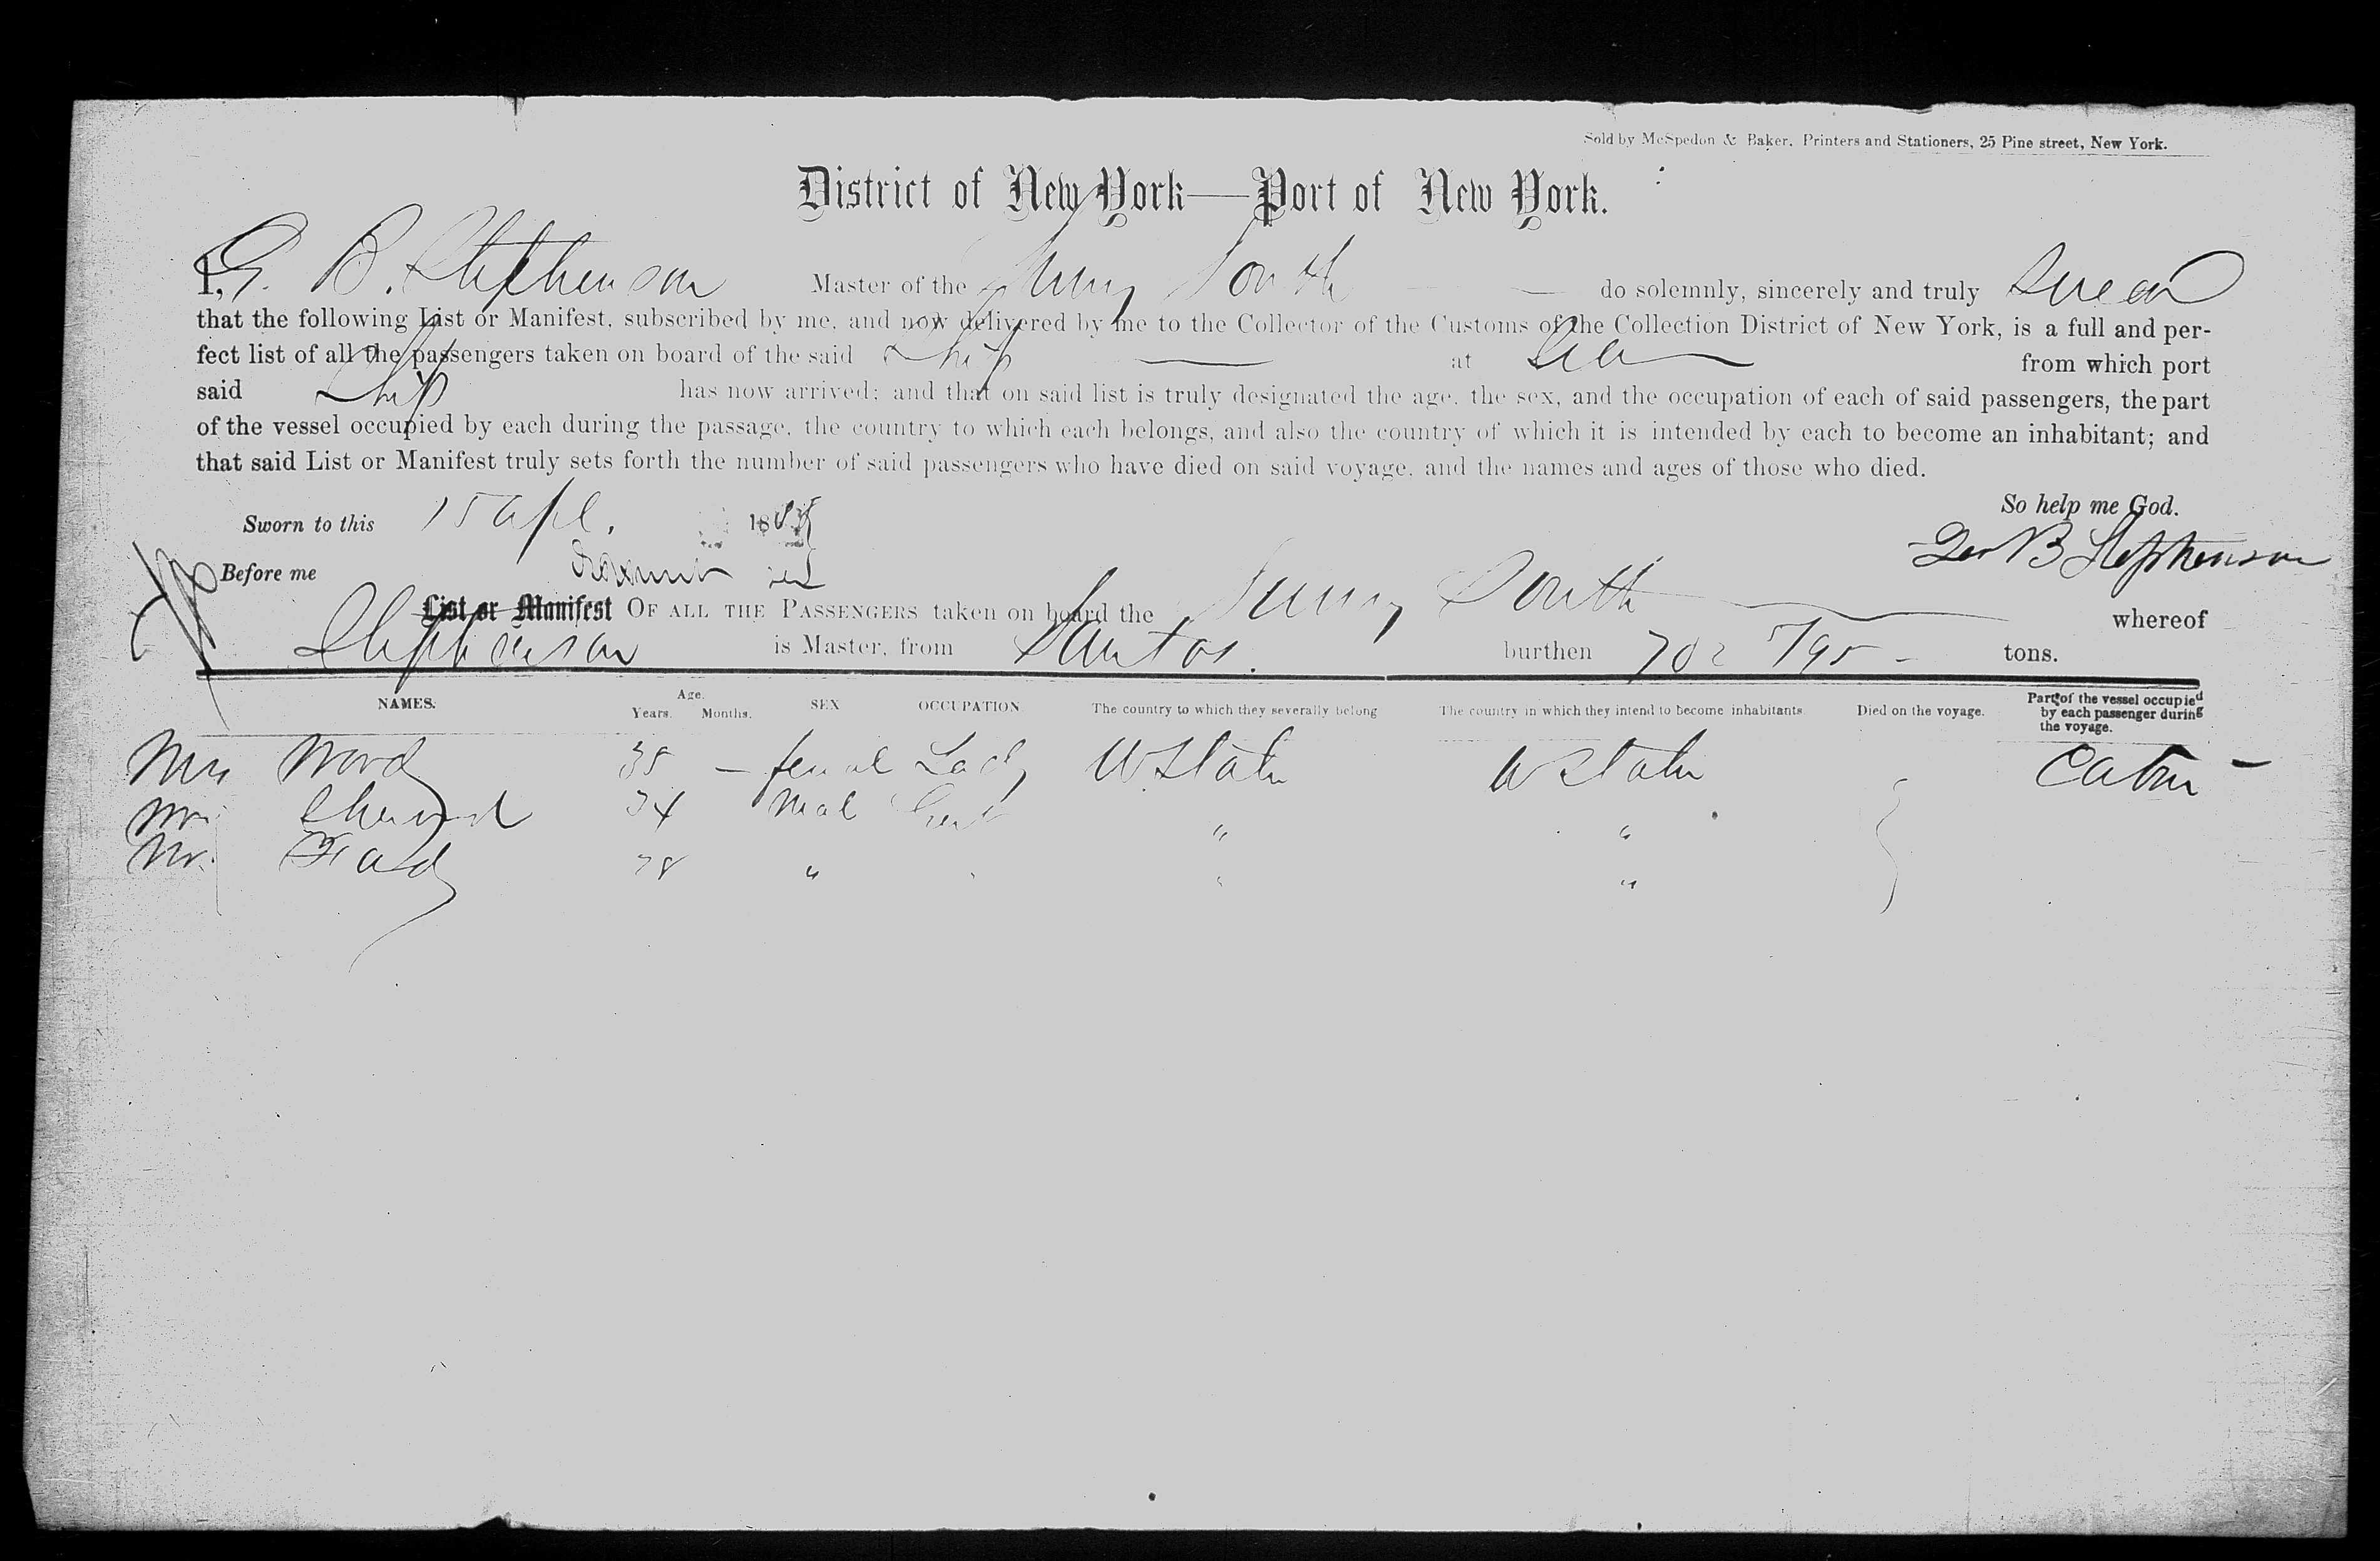 Sold by McSpedon & Baker, Printers and Stationers, 25 Pine street, New York.
District of New York—Port of New York.
I, G. B. Stephenson Master of the Sunny South do solemnly, sincerely and truly Swear
that the following List or Manifest, subscribed by me, and now delivered by me to the Collector of the Customs of the Collection District of New York, is a full and per-
fect list of all the passengers taken on board of the said Ship at Sea from which port
said Ship has now arrived; and that on said list is truly designated the age, the sex, and the occupation of each of said passengers, the part
of the vessel occupied by each during the passage, the country to which each belongs, and also the country of which it is intended by each to become an inhabitant; and
that said List or Manifest truly sets forth the number of said passengers who have died on said voyage, and the names and ages of those who died.
So help me God.
Sworn to this 15 Apl. 18
Geo B Stephenson
Before me
List or Manifest OF ALL THE PASSENGERS taken on board the Sunny South whereof
Stephenson is Master, from Santos. burthen 702 5/95 - tons.
NAMES. Age. Years. Months. SEX OCCUPATION The country to which they severally belong The country in which they intend to become inhabitants Died on the voyage. Part of the vessel occupied by each passenger during the voyage.
Mrs Ward 38 — female Lady U States U States Cabin -
Mr 34 Mal Gent " "
Mr. 28 " " "